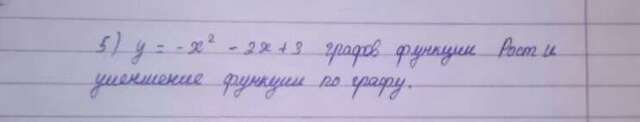 5) y = -x² - 2x + 3 графов функции Рост и
уменшение функции по графу.